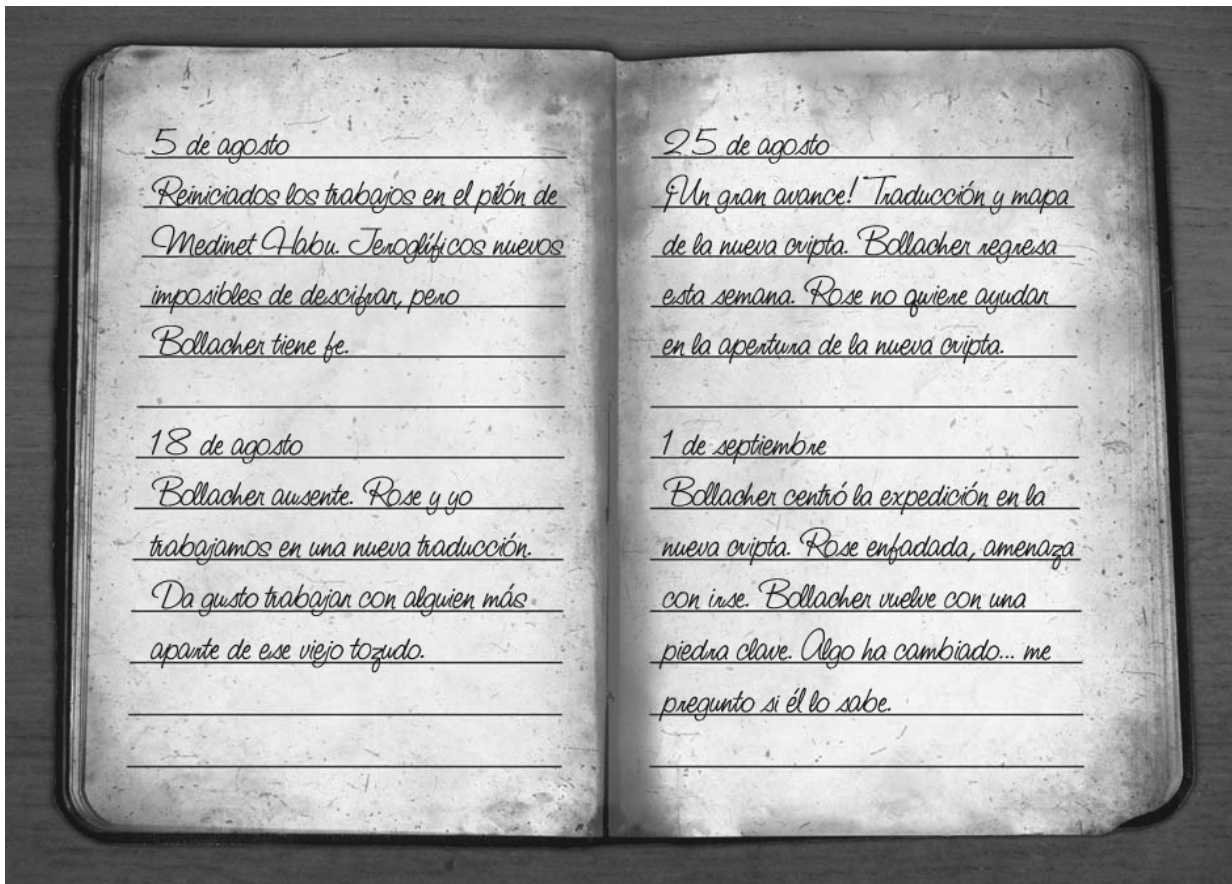 5 de agosto
Reiniciados los trabajos en el pilón de
Medinet Habu. Jeroglíficos nuevos
imposibles de descifrar, pero
Bollacher tiene fe.
18 de agosto
Bollacher ausente. Rose y yo
trabajamos en una nueva traducción.
Da gusto trabajar con alguien más
aparte de ese viejo tozudo.
25 de agosto
¡Un gran avance! Traducción y mapa
de la nueva cripta. Bollacher regresa
esta semana. Rose no quiere ayudar
en la apertura de la nueva cripta.
1 de septiembre
Bollacher centró la expedición en la
nueva cripta. Rose enfadada, amenaza
con irse. Bollacher vuelve con una
piedra clave. Algo ha cambiado... me
pregunto si él lo sabe.